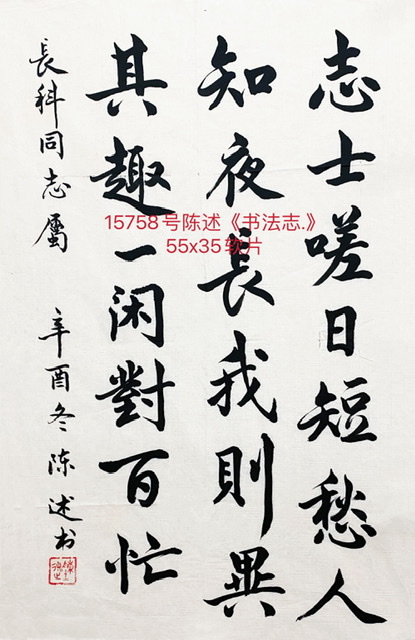 志士嗟日短愁人
知夜長我則異
其趣一闲對百忙
長科同志屬
辛酉冬陈述书
15758号陈述《书法志.》
55x35软片